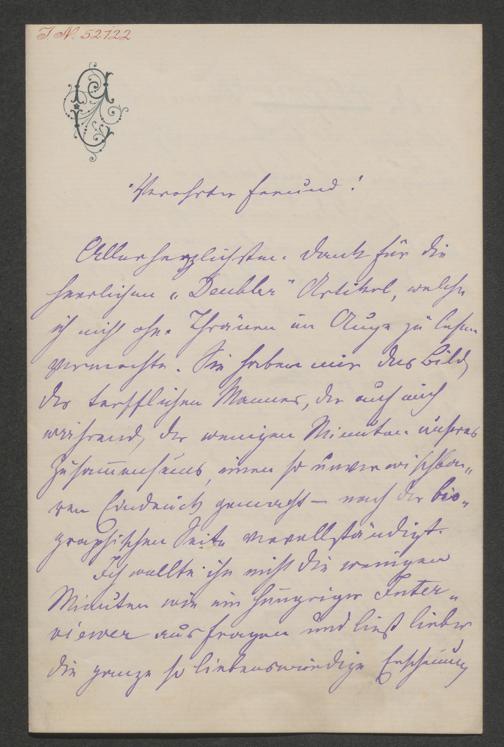 J. N. 52722
Verehrter Freund!
Allerherzlichsten Dank für die
herrlichen „Deubler" Artikel, welche
ich nicht ohne Thränen im Auge zu lesen
vermochte. Sie haben mir das Bild
des trefflichen Mannes, der auch mich
während der wenigen Minuten unseres
Zusammenseins, einen so unverwischba„
ren Eindruck gemacht – nach der bio„
graphischen Seite vervollständigt.
Ich wollte ihn nicht die wenigen
Minuten wie ein hungriger Inter„
viewer ausfragen und ließ lieber
die ganze so liebenswürdige Erscheinung